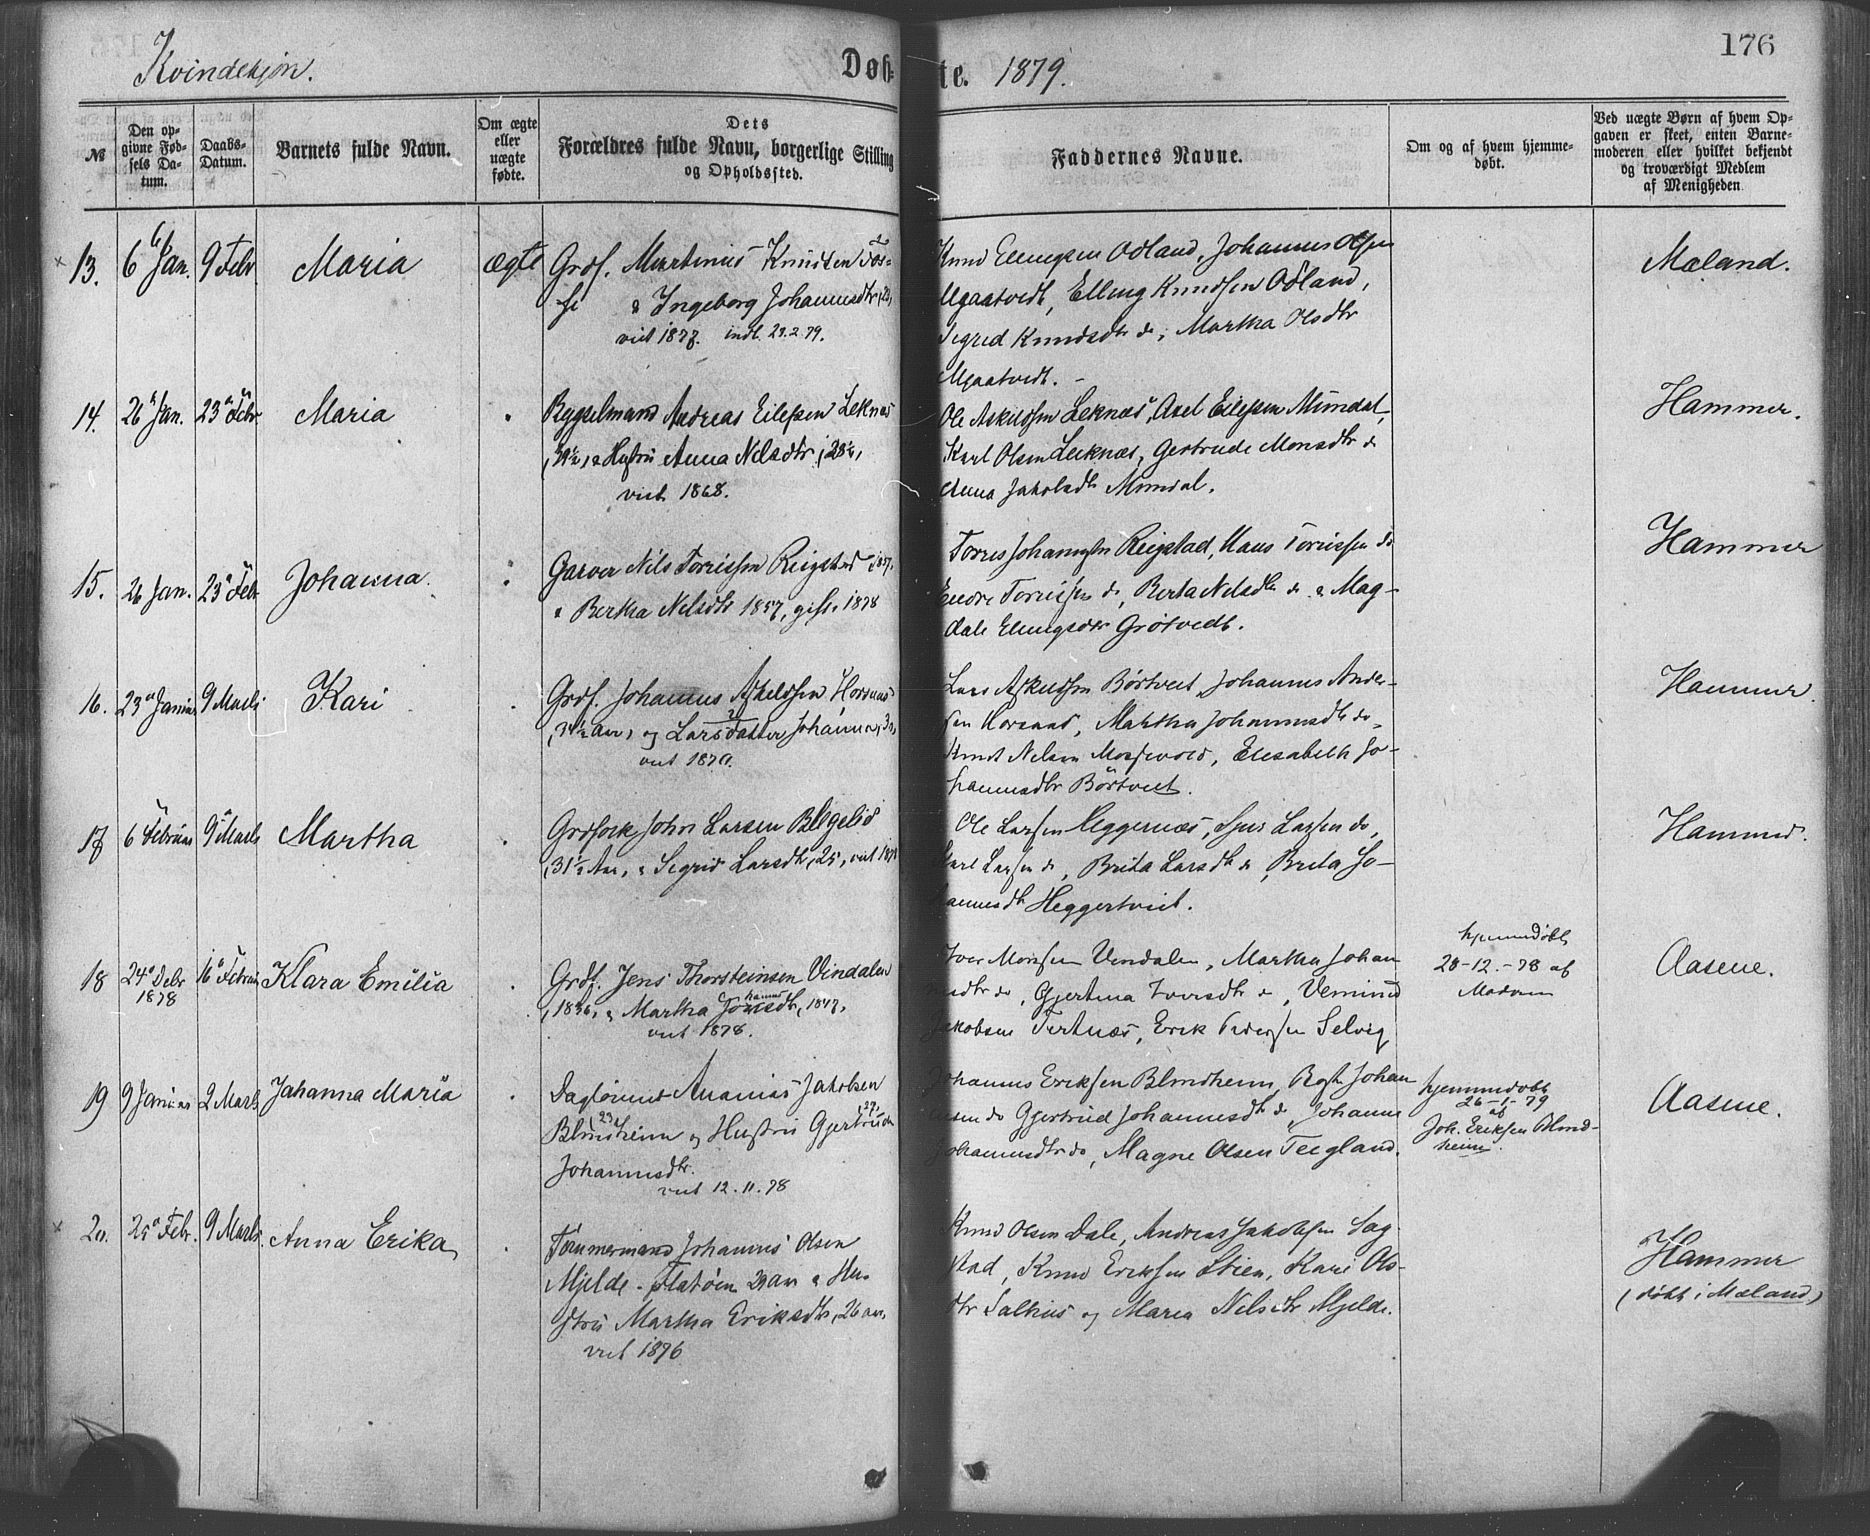 176
Kvindekjøn.
Døb-
te. 1879.
№
Den op-
givne Fød-
sels Da-
tum.
Daabs-
Datum.
Barnets fulde Navn.
Om ægte
eller
uægte
fødte.
Dets
Forældres fulde Navn, borgerlige Stilling
og Opholdssted.
Faddernes Navne.
Om og af hvem hjemme-
døbt.
Ved uægte Børn af hvem Op-
gaven er skeet, enten Barne-
moderen eller hvilket bekjendt
og troværdigt Medlem
af Menigheden
13. 6 Jan. 9 Febr Maria ægte Grdf. Martinus Knudsen Fos-
se & Ingeborg Johannesdtr, 22,
viet 1877. indl. 23.2.79.
Knud Ellingsen Odland, Johannes Olsen
Mjaatvedt, Elling Knudsen Odland,
Sigrid Knudsdtr do, Martha Olsdtr
Mjaatvedt. -
Mæland.
14. 26 Jan. 23 Febr Maria
Bygselmand Andreas Eilefsen Leknæs
& Hustru Anna Nelsdtr, 28½,
viet 1868.
Ole Askildsen Leknæs, Axel Eilefsen Mundal,
Karl Olsen Lecknæs, Gertrude Monsdtr do
Anna Jakobsdtr Mundal.
Hammer.
15. 26 Jan. 23 Febr Johanna.
Garver Nils Torrissen Reigstad 1857,
& Bertha Nelsdtr 1857, gifte 1878
Torres Johannesen Reigstad, Hans Torrissen do
Endre Torrissen do, Berta Nelsdtr do & Mag-
dale Ellingsdtr Grötvedt.
Hammer
16. 23 Januar 9 Marts Kari
Grdf. Johannes Askeldsen Horsnæs
34½ Aar, og Larsdatter Johanna, 30,
viet 1870.
Lars Askildsen Börtveit, Johannes Ander-
sen Horsnæs, Martha Johannesdtr do
Knut Nelsen Mosjevold, Elisabeth Jo-
hannesdtr Börtveit.
Hammer
17 6 Februar 9 Marts Martha
Grdfork John Larsen Blegelid
, 31½ Aar, & Sigrid Larsdtr, 25, viet 1878
Ole Larsen Heggernæs, Sjur Larsen do,
Karl Larsen do, Brita Larsdtr do, Brita Jo-
hannesdtr Heggertveit.
Hammer.
18 24 Debr
1878
16 Februar Klara Emilia
Grdf. Jens Thorsteinsen Vindalen
, 1836, & Martha Johannesdtr, 1847,
viet 1878.
Iver Monsen Vindalen, Martha Johan
nesdtr do, Gjertina Iversdtr do, Vemund
Jakobsen Tertnæs, Erik Pedersen Selvig
hjemmedöbt
28-12.-78 af
Modern
Aasene.
19 9 Januar 2 Marts Johanna Maria
Daglönner Ananias Jakobsen
Blindheim 23 og Hustru Gjertrude 27
Johannesdtr.
viet 12.11.78
Johannes Eriksen Blindheim, Johan
nesen do Gjertrud Johannesdtr do, Johanne
Johannesdtr do, Magne Olsen Teigland.
hjemmedöbt
26-1-79
af
Joh. Eriksen Blind-
heim.
Aasene.
20. 25 Febr. 9 Marts Anna Erika
Tömmermand Johannes Olsen
Mjelde - Flatöen 29 aar & Hu-
stru Martha Eriksdtr, 26 aar,
viet 1876
Knud Olsen Dale, Andreas Jakobsen Sag-
stad, Knud Eriksen Stien, Kari Ols-
dtr Salhus og Maria Nelsdtr Mjelde.
Hammer
(döbt i Mæland)